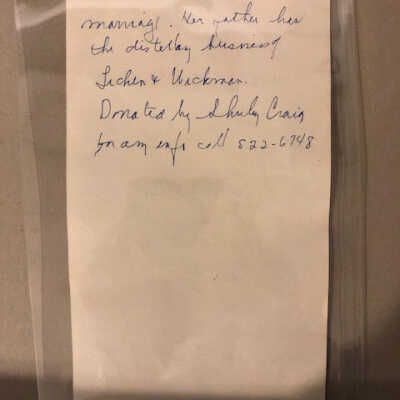 marriage. Her father has
the distillay business of
& Wackman.
Donated by Shirley Craig
for any info call 522-6748